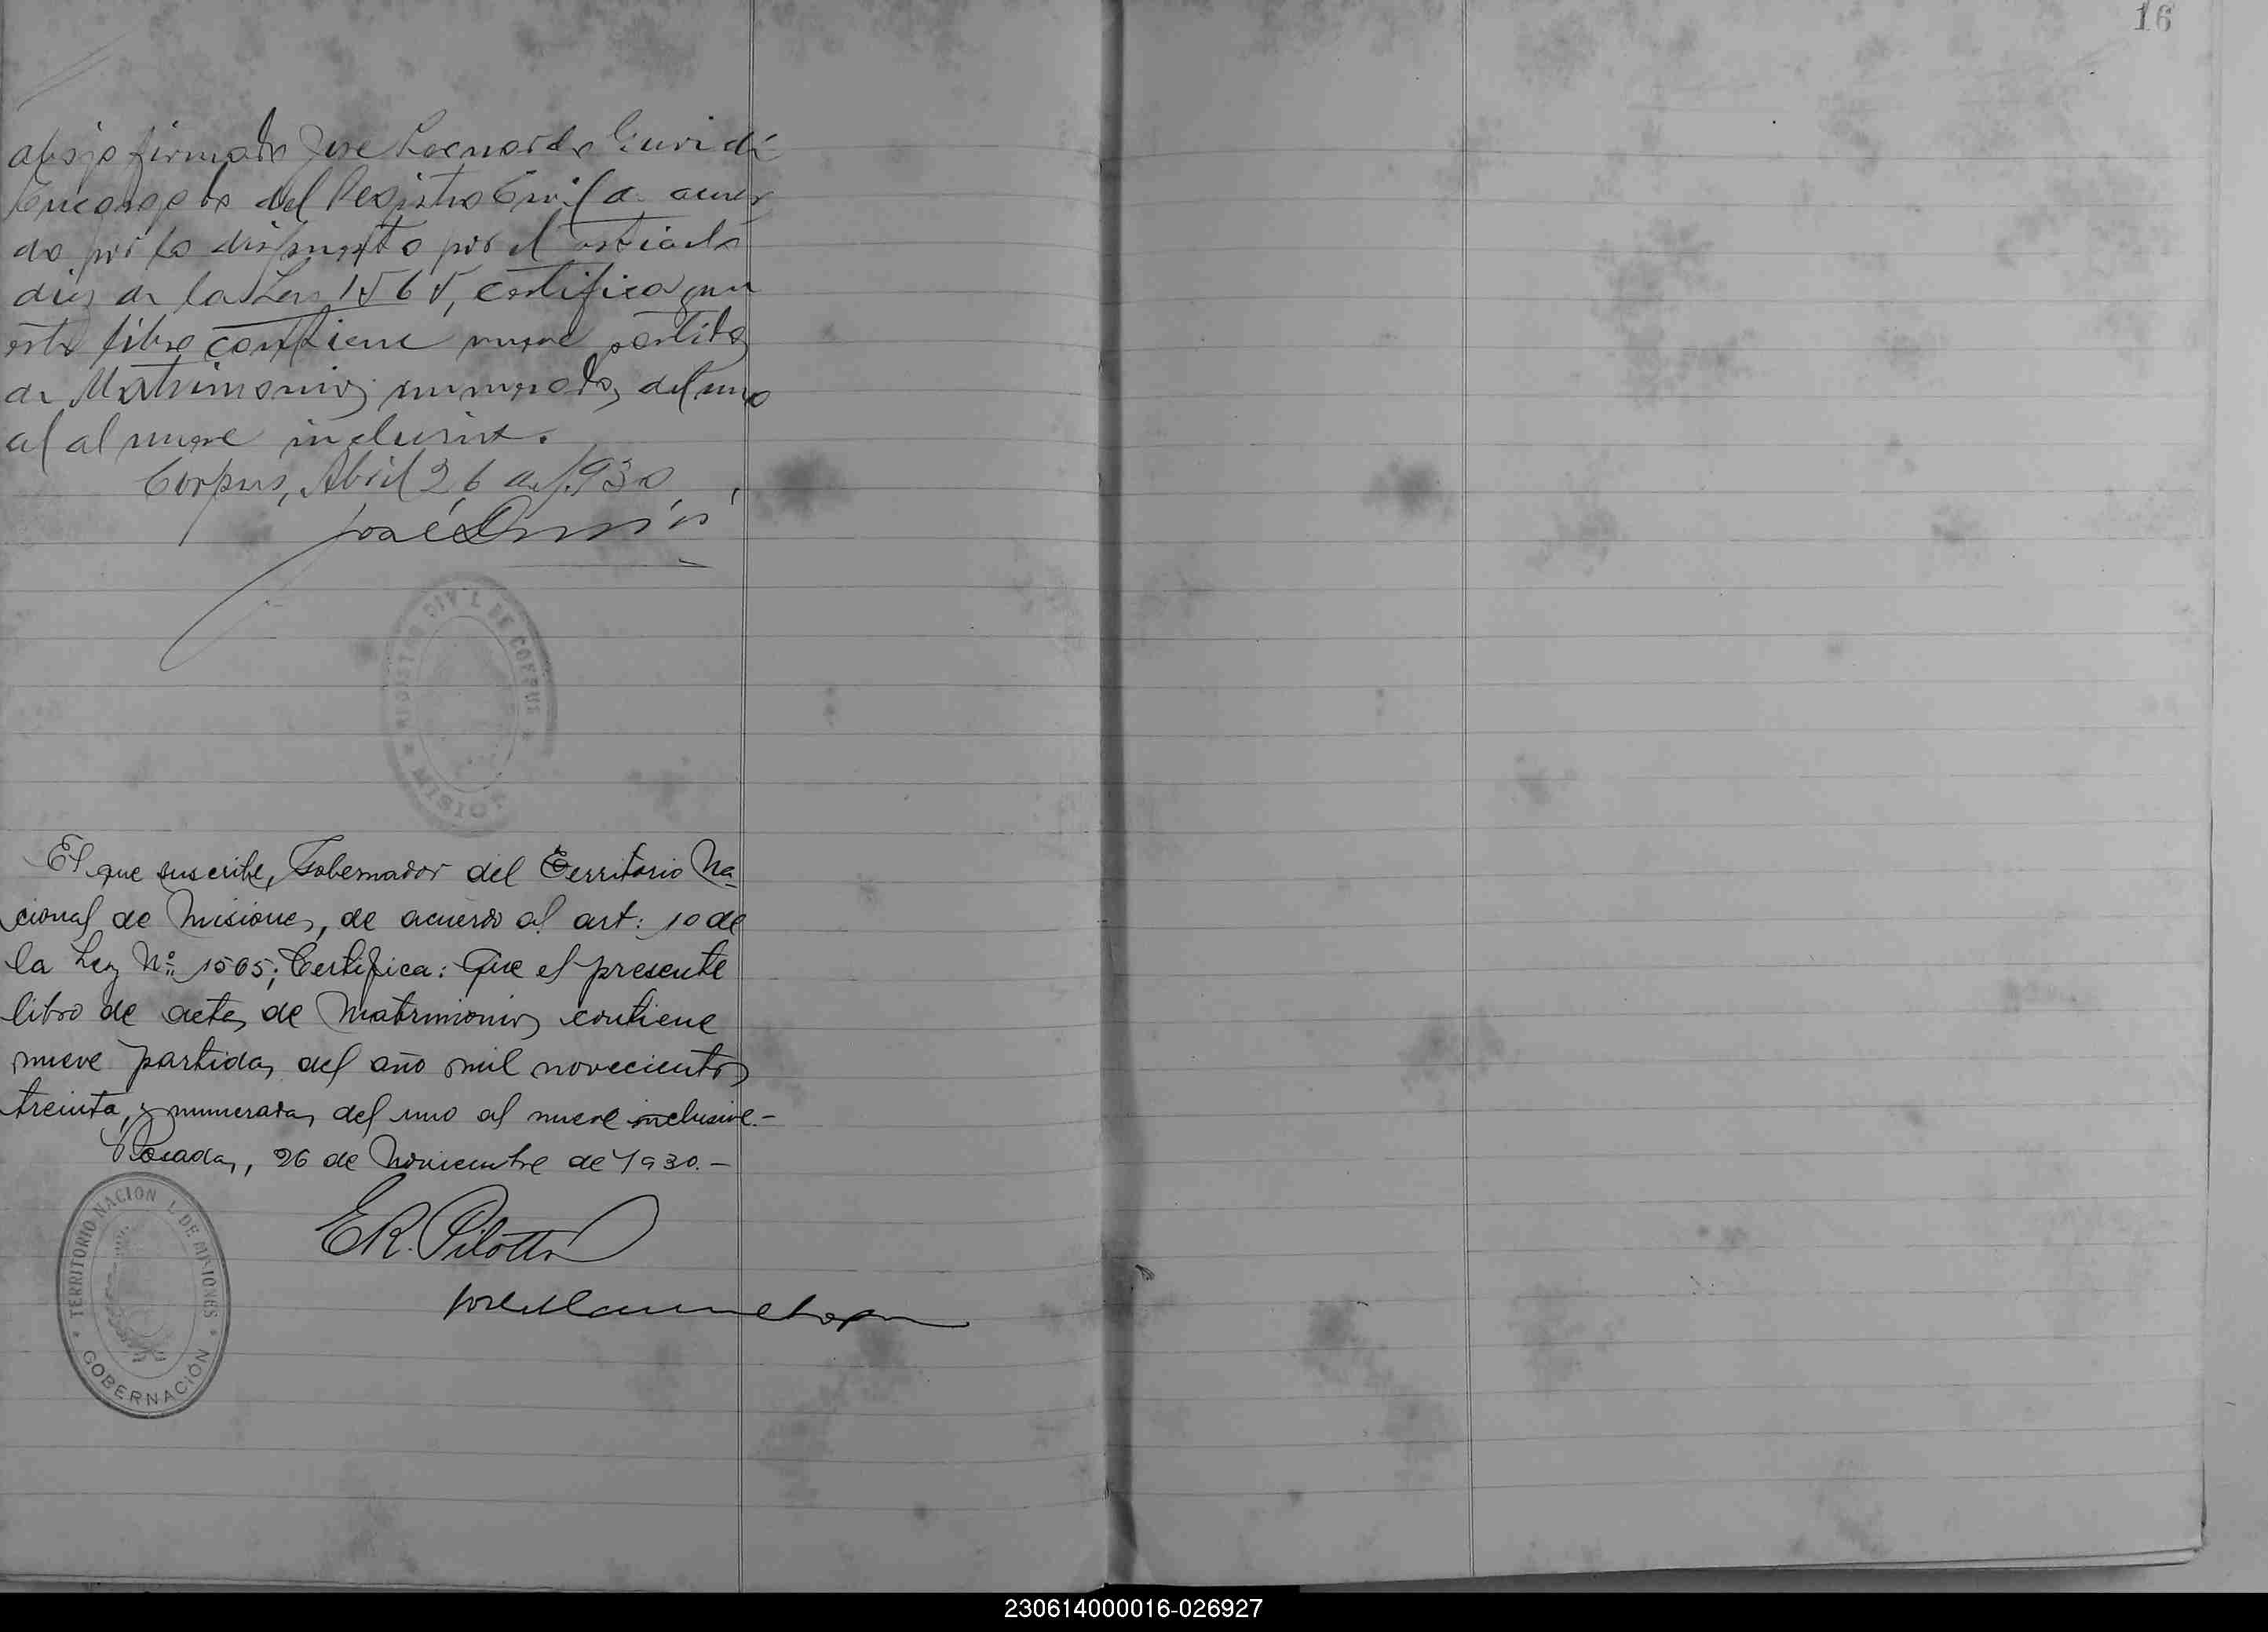 16
abajo firmado Jose Leonardo Guridi
Encargado del Registro Civil a acuer
do por lo dispuesto por el articulo
diez de la Ley 1565, certifica que
este libro contiene nueve partidas
de Matrimonios numerados del uno
al al nueve inclusive.
Corpus, Abril 26 de 1930
José
REGISTRO CIVIL DE CORPUS
MISIONES
El que suscribe, Gobernador del Territorio Na-
cional de Misiones, de acuerdo al art: 10 de
la Ley Nº 1565; Certifica: Que el presente
libro de actas de Matrimonios contiene
nueve partidas del año mil novecientos
treinta, y numeradas del uno al nueve inclusive.-
Posadas, 26 de Noviembre de 1930.-
TERRITORIO NACIONAL DE MISIONES
GOBERNACIÓN
E.R. Pilotto
230614000016-026927